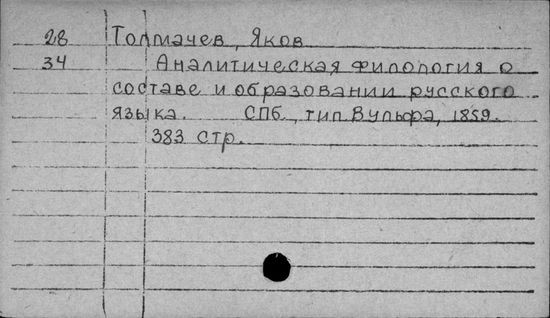 28 Толмачев, Яков
34 Аналитическая филология о
составе и образовании русского
языка. СПб, тип Вульфа, 1859.
383 стр.